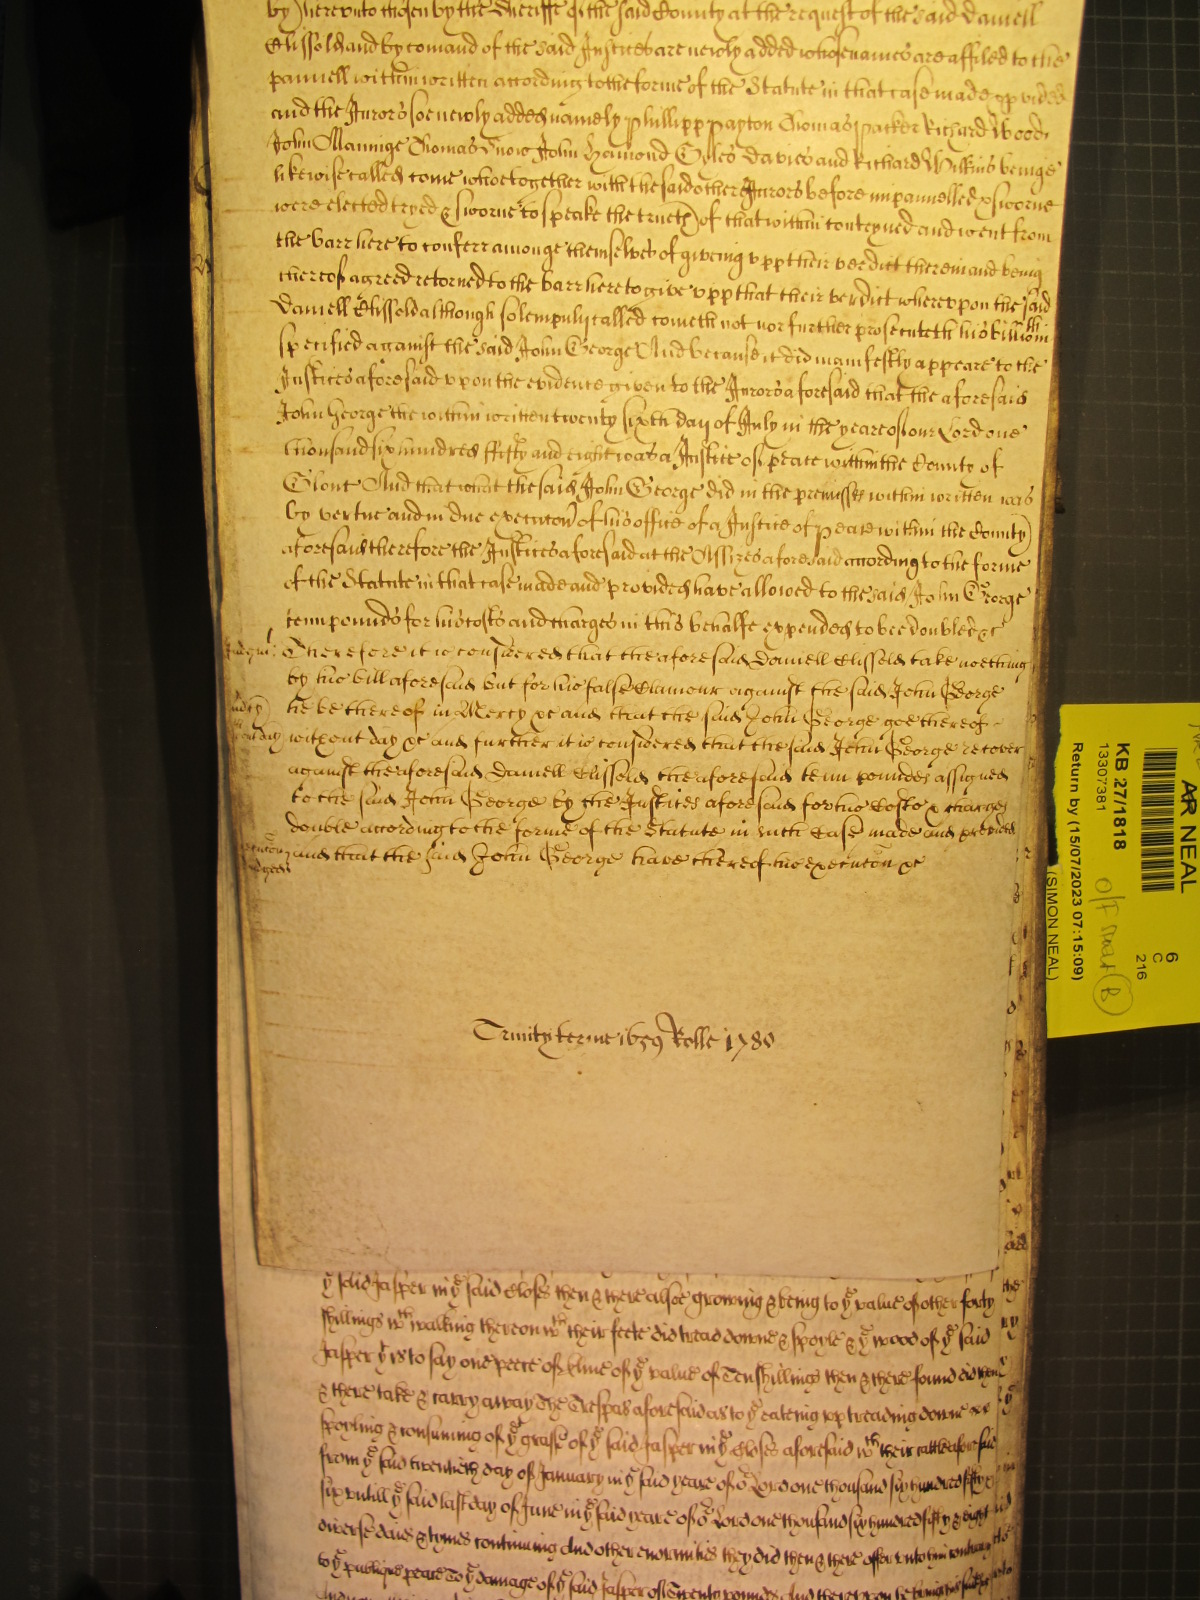 by) hereunto chosen by the Sheriffe of the said County at the request of the said Daniell
Clissold and by comand of the said Justices are newly added whose names are affiled to the
pannell within written according to the forme of the Statute in that case made & pvided
and the Jurors soe newly added namely Phillipp Payton Thomas Parker Richard Wood
John Mannige Thomas Snow John Hamond Gyles Davies and Richard Wilkins beinge
likewise called come whoe together with the said other Jurors before impannelled & sworne
were elected tryed & sworne to speake the trueth of that within conteyned and went from
the barr here to conferr amonge themselves of giveing upp their verdict therein and being
thereof agreed returned to the barr here to give upp that their verdict whereupon the said
Daniell Clissold although solempnly called cometh not nor further prosecuteth his bill within
specified against the said John George And because it did manifestly appeare to the
Justices aforesaid upon the evidence given to the Jurors aforesaid that the aforesaid
John George the within written twenty sixth day of July in the yeare of our Lord one
thousand six hundred fifty and eight was a Justice of peace within the County of
Glouc And that what the said John George did in the premisses within written was
by vertue and in due execucon of his office of a Justice of Peace within the County
aforesaid therefore the Justices aforesaid at the Assizes aforesaid according to the forme
of the Statute in that case made and provided have allowed to the said John George
tenn pounds for his costs and charges in this behalfe expended to bee doubled &c
Judgmt: Therefore it is considered that the aforesaid Daniell Clissold take nothing
by his bill aforesaid but for his false Clamour against the said John George
mercy he be thereof in Mercy &c and that the said John George goe thereof
without day &c and further it is considered that the said John George recover
against the aforesaid Daniell Clissold the aforesaid tenn pounds assigned
to the said John George by the Justices aforesaid for his Costs & charges
double according to the forme of the Statute in such Case made and provided
and that the said John George have thereof his execucon &c
Trinity terme 1659 Rolle 1780
yᵉ said Jasper in yᵉ said Closes then & there alsoe growing & being to yᵉ value of other forty
shillings wᵗʰ walking thereon wᵗʰ their feete did tread downe & spoyle & yᵉ wood of yᵉ said
Jasper yᵗ is to say one peece of Elme of yᵉ value of Ten shillings then & there found did then
& there take & carry away The Trespas aforesaid as to yᵉ eateing up treading downe
spoyling & consuming of yᵉ grasse of yᵉ said Jasper in yᵉ Closes aforesaid wᵗʰ their cattle aforesaid
from yᵉ said twentieth day of January in yᵉ said yeare of oʳ Lord one thousand six hundred fifty &
six untill yᵉ said last day of June in yᵉ said yeare of oʳ Lord one thousand six hundred fifty & eight
diverse daies & tymes continuing And other enormities they did then & there offer unto him contrary
to yᵉ publique peace To yᵉ damage of yᵉ said Jasper of Twenty pounds And thereupon he bringeth suite
AR NEAL
KB 27/1818
13307381
Return by (15/07/2023 07:15:09)
(SIMON NEAL)
6
C
216